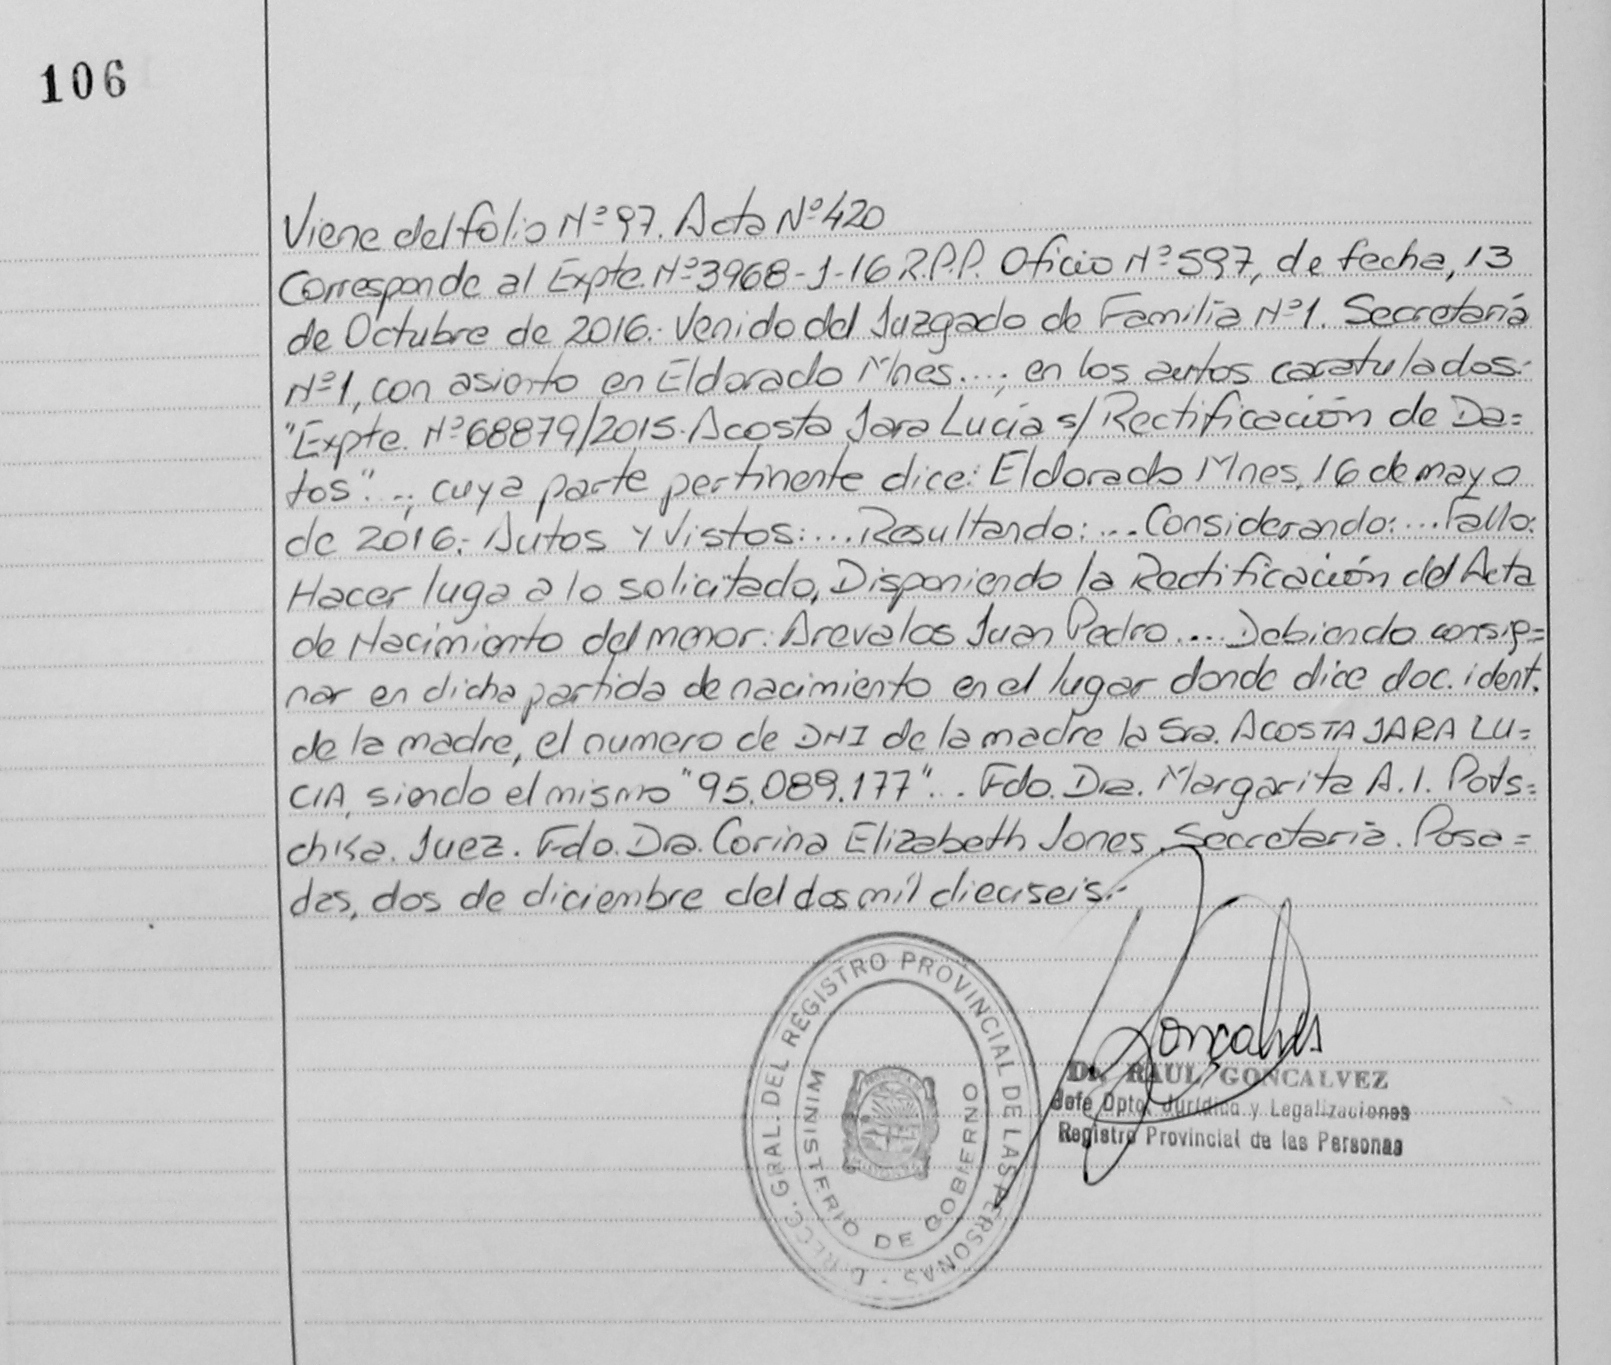 106
Viene del folio Nº 97. Acta Nº 420
Corresponde al Expte. Nº 3968-J-16 R.P.P. Oficio Nº 597, de fecha, 13
de Octubre de 2016.- Venido del Juzgado de Familia Nº1. Secretaría
Nº1, con asiento en Eldorado Mnes...; en los autos caratulados:
"Expte. Nº 68879/2015. Acosta Jara Lucía s/ Rectificación de Da=
tos"..; cuya parte pertinente dice: Eldorado Mnes, 16 de mayo
de 2016.- Autos y Vistos:...Resultando:...Considerando:...Fallo:
Hacer luga a lo solicitado, Disponiendo la Rectificación del Acta
de Nacimiento del menor: Arevalos Juan Pedro.... Debiendo consig=
nar en dicha partida de nacimiento en el lugar donde dice doc. ident.
de la madre, el numero de DNI de la madre la Sra. ACOSTA JARA LU=
CIA, siendo el mismo "95.089.177"... Fdo. Dra. Margarita A. I. Pots=
chka. Juez. Fdo. Dra. Corina Elizabeth Jones. Secretaria. Posa=
das, dos de diciembre del dos mil dieciseis.-
GRAL. DEL REGISTRO PROVINCIAL DE LAS PERSONAS
MINISTERIO DE GOBIERNO
Goncalves
Dr. RAUL GONCALVEZ
Jefe Dpto. Jurídico y Legalizaciones
Registro Provincial de las Personas